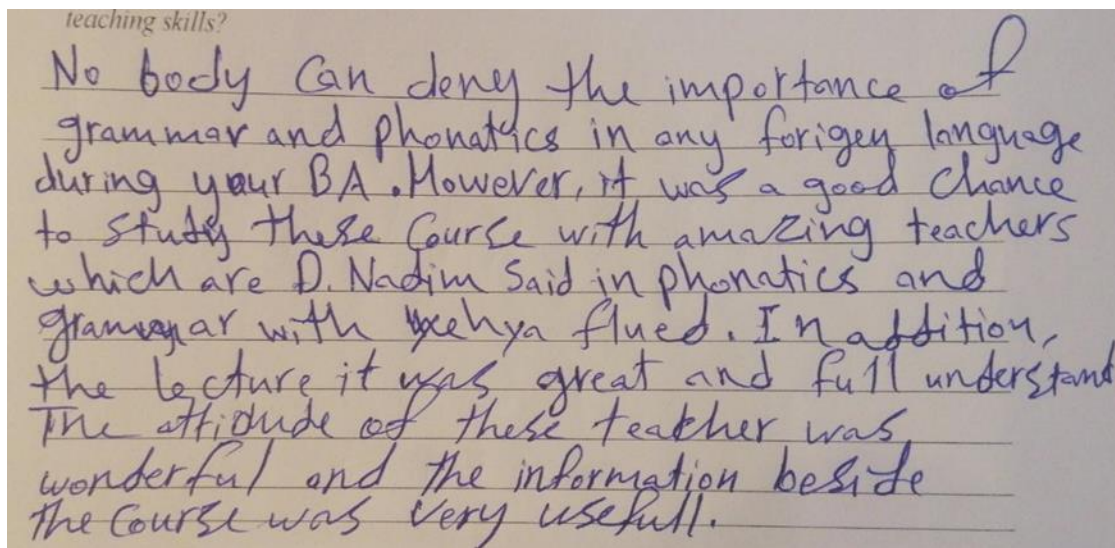 teaching skills?
No body Can deny the importance of
grammar and phonatics in any forigen language
during your BA. However, it was a good Chance
to study these Course with amazing teachers
which are D. Nadim Said in phonatics and
grammar with yehya flued. In addition,
the lecture it was great and full understand
The attidude of these teacher was
wonderful and the information beside
the Course was very usefull.